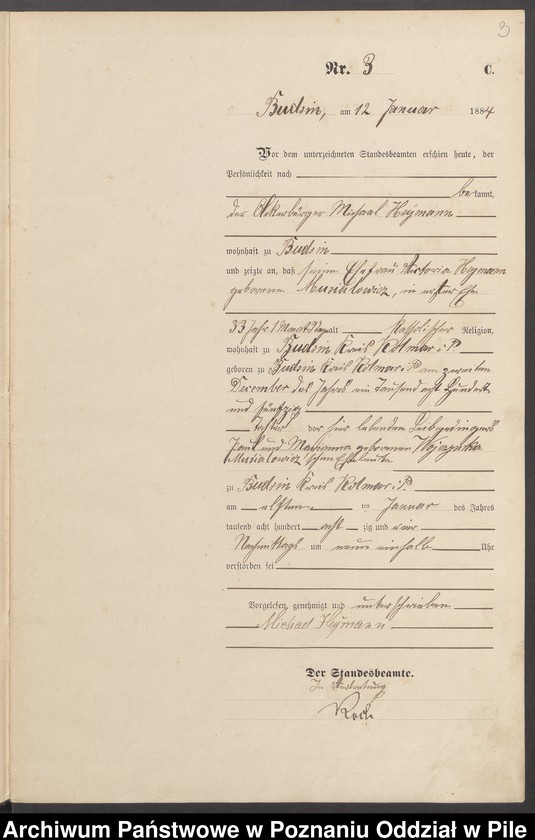 3
Nr. 3 C.
Budsin, am 12 Januar 1884
Vor dem unterzeichneten Standesbeamten erschien heute, der
Persönlichkeit nach
bekannt,
der Ackerbürger Michael Heymann
wohnhaft zu Budsin
und zeigte an, daß seine Ehefrau Victoria Heymann
geborene Musialowicz, in erster Ehe
33 Jahr 1 Monat alt Katholischer Religion,
wohnhaft zu Budsin Kreis Kolmar i. P.
geboren zu Budsin Kreis Kolmar i. P. am zweiten
December des Jahres ein Tausend acht Hundert
und fünfzig
Tochter der hier lebenden Leibgedingers
Paul und Marianna geborenen
Musialowicz'schen Eheleute
zu Budsin Kreis Kolmar i. P.
am elften ten Januar des Jahres
tausend acht hundert acht zig und vier
Nachmittags um neun einhalb Uhr
verstorben sei
Vorgelesen, genehmigt und unterschrieben
Michael Heymann
Der Standesbeamte.
In Vertretung
Koch
Archiwum Państwowe w Poznaniu Oddział w Pile